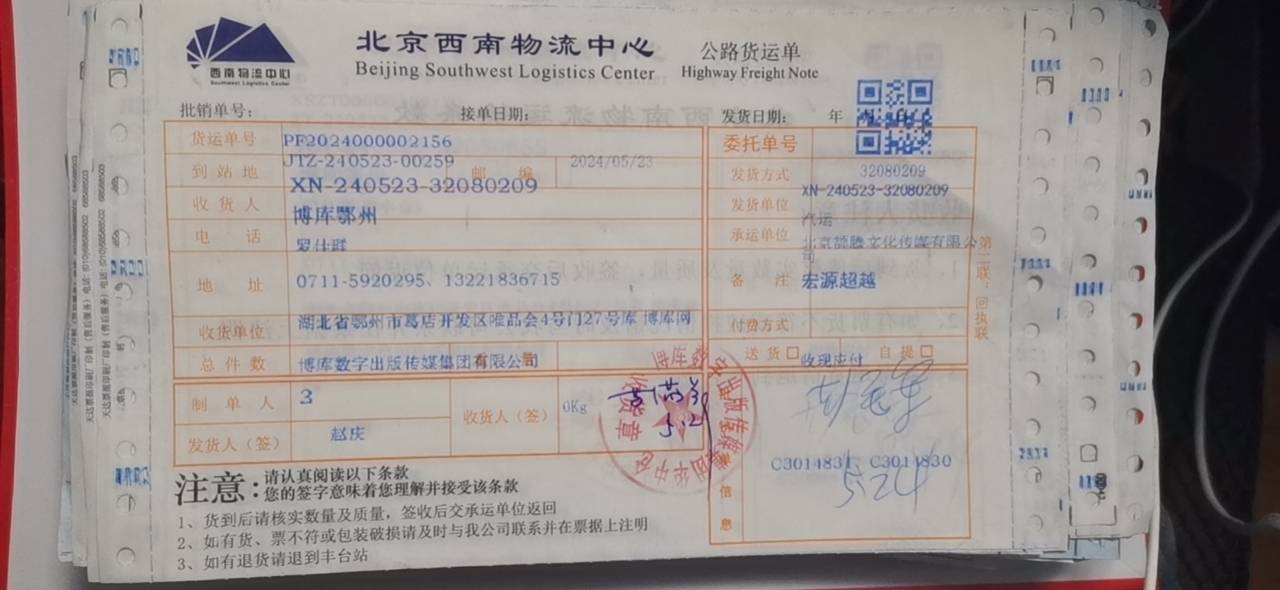 西南物流中心
Southwest Logistics Center
北京西南物流中心
Beijing Southwest Logistics Center
公路货运单
Highway Freight Note
批销单号： 接单日期： 发货日期： 年
货运单号 PF2024000002156 委托单号
JTZ-240523-00259
到站地 邮编 2024/05/23 发货方式 32080209
XN-240523-32080209 XN-240523-32080209
收货人 博库鄂州 发货单位 汽运
电话 罗仕联 承运单位 北京颉腾文化传媒有限公司
地址 0711-5920295、13221836715 备注 宏源超越
收货单位 湖北省鄂州市葛店开发区唯品会4号门27号库 博库网 付款方式
总件数 博库数字出版传媒集团有限公司 送货口 收现应付 自提口
制单人 3 收货人（签） 0Kg
发货人（签） 赵庆
C3014831、C3014830
信息
5.24
第二联：回执联
注意：
请认真阅读以下条款
您的签字意味着您理解并接受该条款
1、货到后请核实数量及质量，签收后交承运单位返回
2、如有货、票不符或包装破损请及时与我公司联系并在票据上注明
3、如有退货请退到丰台站